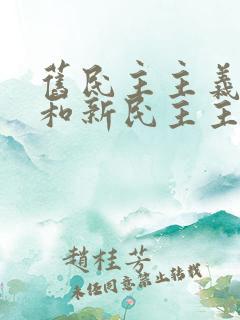 舊民主主義
和新民主主
趙桂芳
未任同意禁止轉載